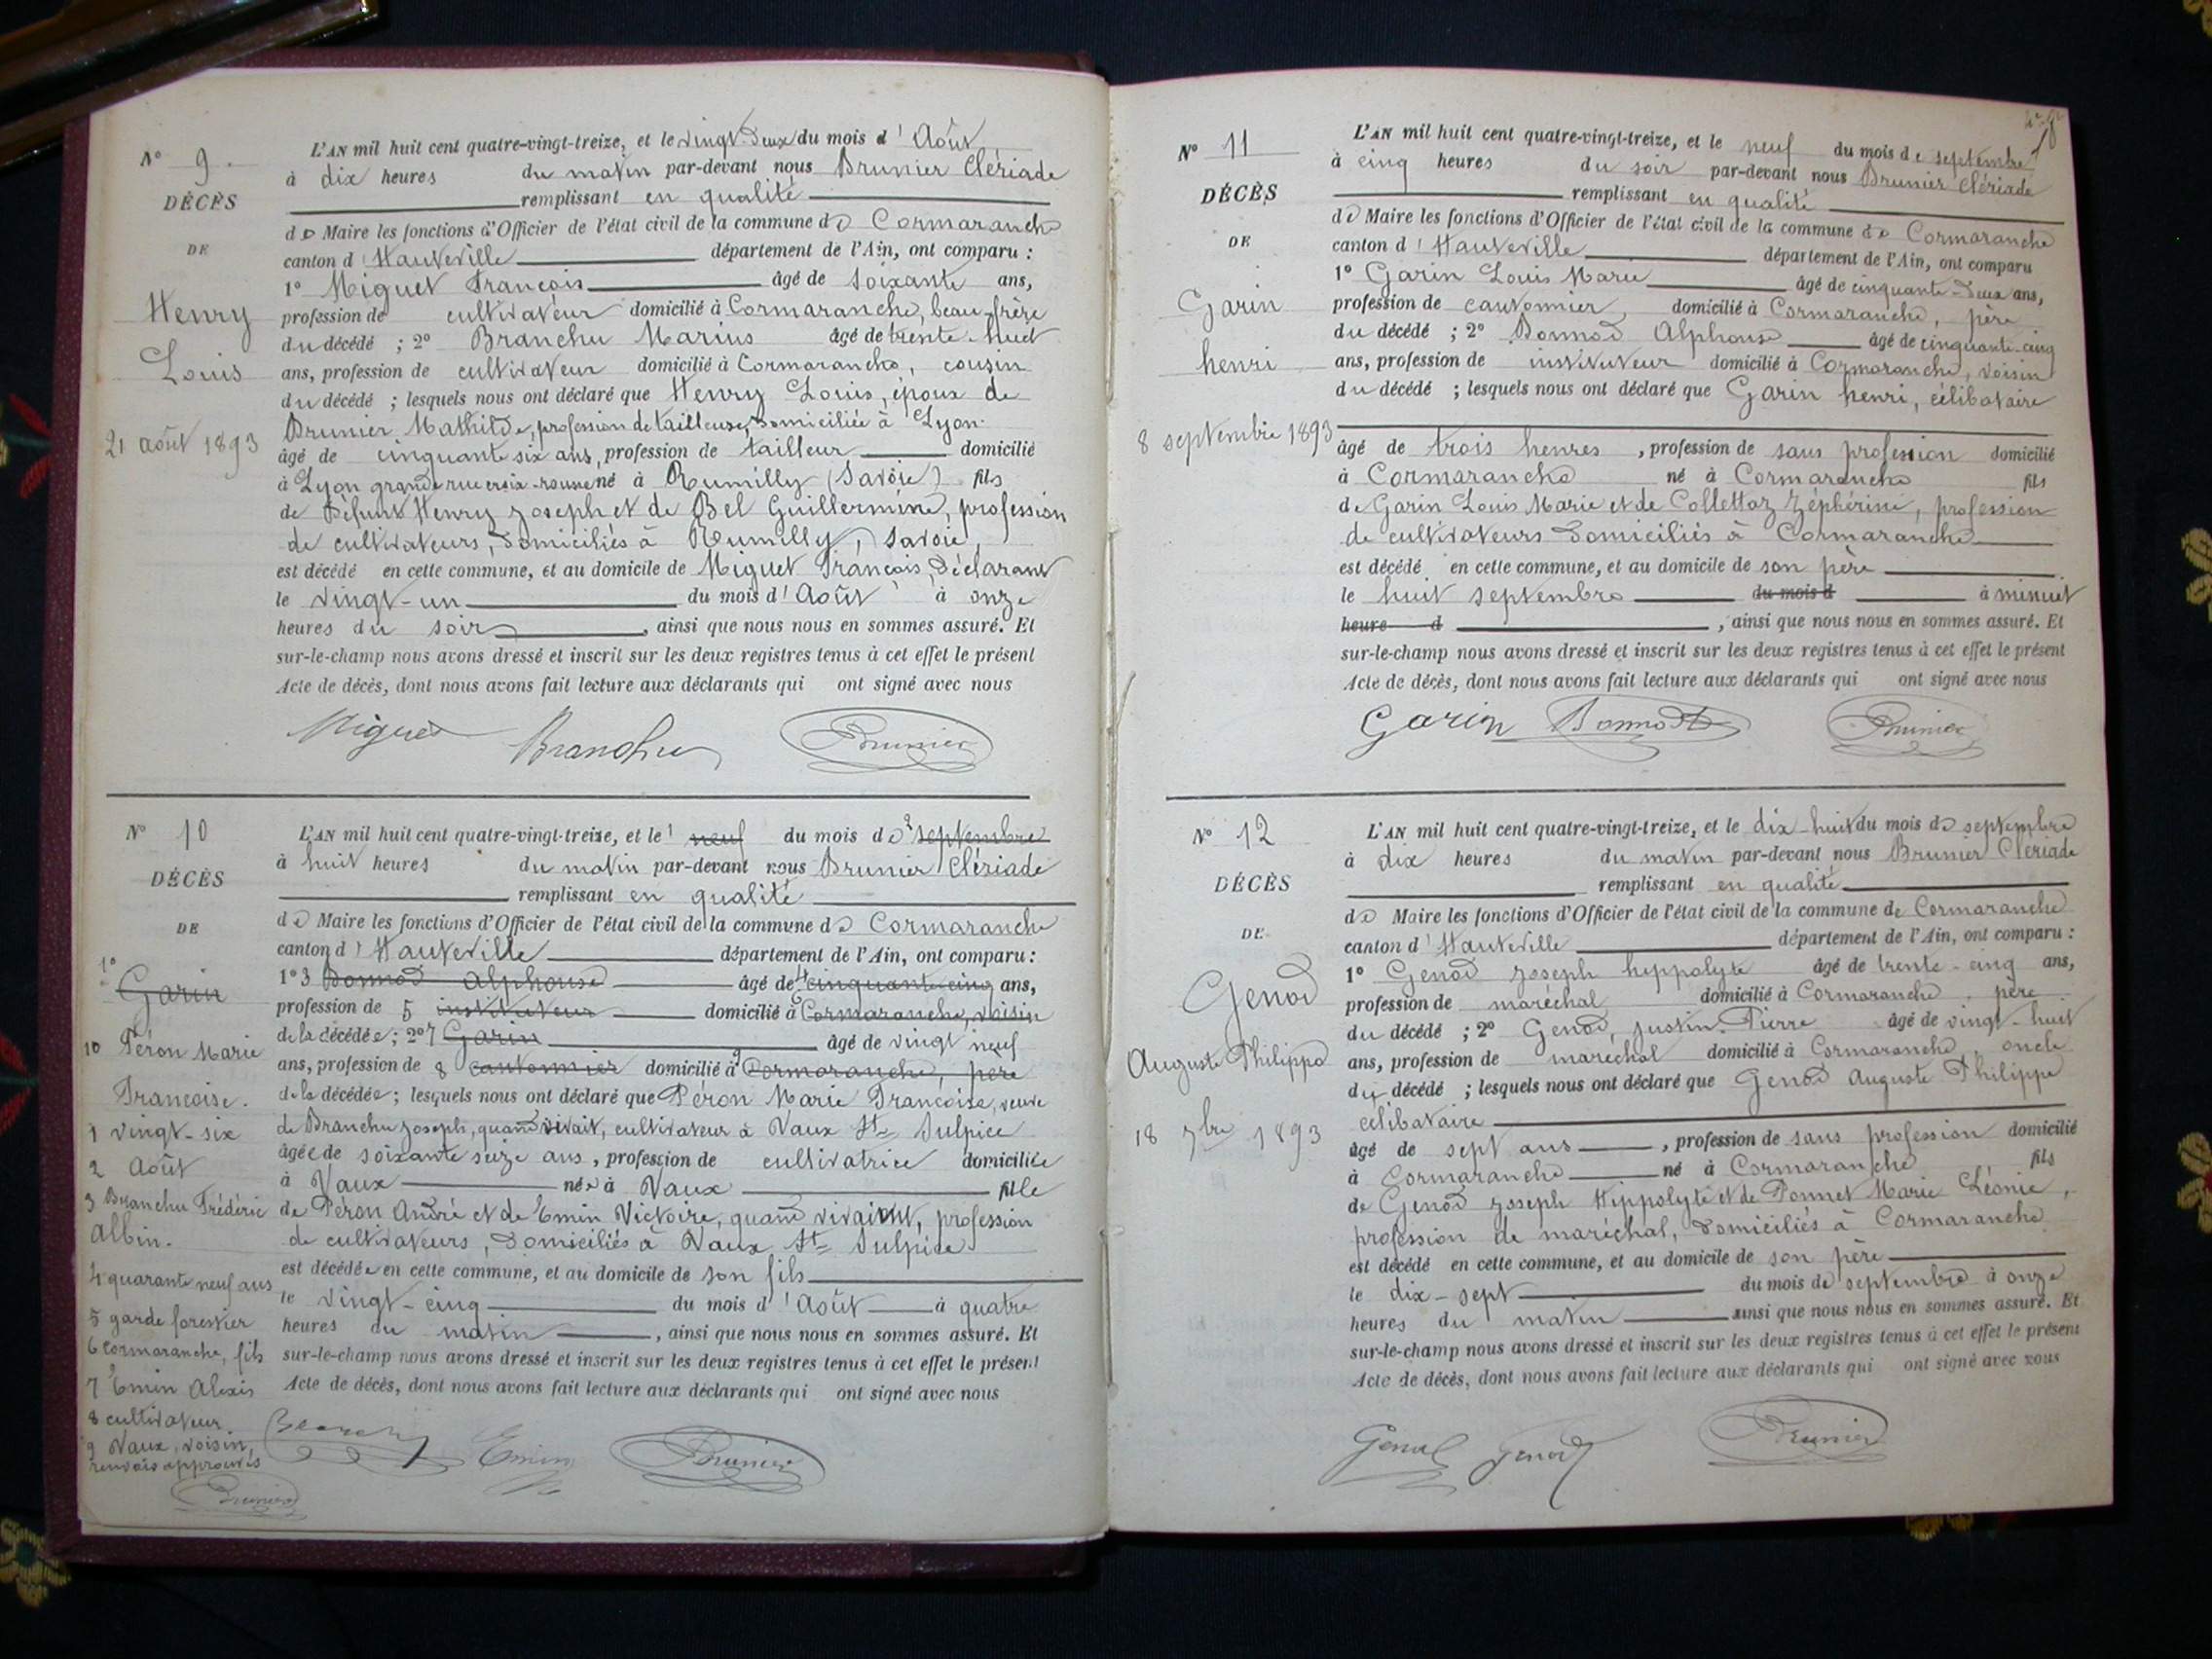 N° 9.
DÉCÈS
DE
Henry
Louis
21 août 1893
L'AN mil huit cent quatre-vingt-treize, et le vingt-deux du mois d'Août
à dix heures du matin par-devant nous Brunier Clériade
remplissant en qualité
de Maire les fonctions d'Officier de l'état civil de la commune de Cormaranche
canton d'Hauteville département de l'Ain, ont comparu :
1° Miguet François âgé de soixante ans,
profession de cultivateur domicilié à Cormaranche, beau-frère
du décédé ; 2° Branchu Marius âgé de trente-huit
ans, profession de cultivateur domicilié à Cormaranche, cousin
du décédé ; lesquels nous ont déclaré que Henry Louis, époux de
Brunier Mathilde, profession de tailleuse, domiciliée à Lyon.
âgé de cinquante six ans, profession de tailleur domicilié
à Lyon grande rue croix-rousse né à Rumilly (Savoie) fils
de défunt Henry Joseph et de Bel Guillermine, profession
de cultivateurs, domiciliés à Rumilly, Savoie,
est décédé en cette commune, et au domicile de Miguet François, déclarant
le vingt-un du mois d'Août à onze
heures du soir, ainsi que nous nous en sommes assuré. Et
sur-le-champ nous avons dressé et inscrit sur les deux registres tenus à cet effet le présent
Acte de décès, dont nous avons fait lecture aux déclarants qui ont signé avec nous
Miguet Branchu Brunier
N° 10
DÉCÈS
DE
1°
Garin
10 Péron Marie
Françoise.
1 vingt-six
2 Août
3 Branchu Frédéric
Albin.
4 quarante neuf ans
5 garde forestier
6 Cormaranche, fils
7 Emin Alexis
8 cultivateur
9 Vaux, voisin,
renvois approuvés
Brunier
L'AN mil huit cent quatre-vingt-treize, et le 1 neuf du mois de 2 septembre
à huit heures du matin par-devant nous Brunier Clériade
remplissant en qualité
de Maire les fonctions d'Officier de l'état civil de la commune de Cormaranche
canton d'Hauteville département de l'Ain, ont comparu :
1° 3 Bonnod Alphonse âgé de 4 cinquante cinq ans,
profession de 5 instituteur domicilié à 6 Cormaranche, voisin
de la décédée ; 2° 7 Garin âgé de vingt neuf
ans, profession de 8 cantonnier domicilié à 9 Cormaranche, père
de la décédée ; lesquels nous ont déclaré que Péron Marie Françoise, veuve
de Branchu Joseph, quand vivait, cultivateur à Vaux St Sulpice
âgée de soixante seize ans, profession de cultivatrice domiciliée
à Vaux née à Vaux fille
de Péron André et de Emin Victoire, quand vivaient, profession
de cultivateurs, domiciliés à Vaux St Sulpice
est décédée en cette commune, et au domicile de son fils
le vingt-cinq du mois d'Août à quatre
heures du matin, ainsi que nous nous en sommes assuré. Et
sur-le-champ nous avons dressé et inscrit sur les deux registres tenus à cet effet le présent
Acte de décès, dont nous avons fait lecture aux déclarants qui ont signé avec nous
Branchu Emin Brunier
N° 11
DÉCÈS
DE
Garin
henri
8 septembre 1893
L'AN mil huit cent quatre-vingt-treize, et le neuf du mois de septembre
à cinq heures du soir par-devant nous Brunier Clériade
remplissant en qualité
de Maire les fonctions d'Officier de l'état civil de la commune de Cormaranche
canton d'Hauteville département de l'Ain, ont comparu
1° Garin Louis Marie âgé de cinquante-deux ans,
profession de cantonnier domicilié à Cormaranche, père
du décédé ; 2° Bonnod Alphonse âgé de cinquante-cinq
ans, profession de instituteur domicilié à Cormaranche, voisin
du décédé ; lesquels nous ont déclaré que Garin henri, célibataire
âgé de trois heures, profession de sans profession domicilié
à Cormaranche né à Cormaranche fils
de Garin Louis Marie et de Collettaz Zéphérine, profession
de cultivateurs domiciliés à Cormaranche
est décédé en cette commune, et au domicile de son père
le huit septembre du mois d à minuit
heure d, ainsi que nous nous en sommes assuré. Et
sur-le-champ nous avons dressé et inscrit sur les deux registres tenus à cet effet le présent
Acte de décès, dont nous avons fait lecture aux déclarants qui ont signé avec nous
Garin Bonnod Brunier
N° 12
DÉCÈS
DE
Genod
Auguste Philippe
18 7bre 1893
L'AN mil huit cent quatre-vingt-treize, et le dix-huit du mois de septembre
à dix heures du matin par-devant nous Brunier Clériade
remplissant en qualité
de Maire les fonctions d'Officier de l'état civil de la commune de Cormaranche
canton d'Hauteville département de l'Ain, ont comparu :
1° Genod Joseph hippolyte âgé de trente-cinq ans,
profession de maréchal domicilié à Cormaranche, père
du décédé ; 2° Genod, Justin Pierre âgé de vingt-huit
ans, profession de maréchal domicilié à Cormaranche, oncle
du décédé ; lesquels nous ont déclaré que Genod Auguste Philippe
célibataire
âgé de sept ans, profession de sans profession domicilié
à Cormaranche né à Cormaranche fils
de Genod Joseph Hippolyte et de Ponnet Marie Léonie,
profession de maréchal, domiciliés à Cormaranche
est décédé en cette commune, et au domicile de son père
le dix-sept du mois de septembre à onze
heures du matin ainsi que nous nous en sommes assuré. Et
sur-le-champ nous avons dressé et inscrit sur les deux registres tenus à cet effet le présent
Acte de décès, dont nous avons fait lecture aux déclarants qui ont signé avec nous
Genod Genod Brunier